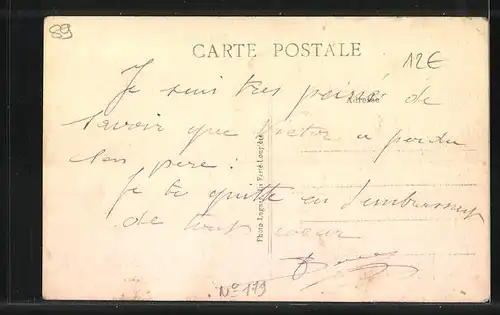 89
CARTE POSTALE
12€
Je suis tres peiné de
Adresse
savoir que Victor a perdu
son pere :
Je te quitte en t'embrassant
de tout coeur
Photo La Ferté-Loupière
N° 179